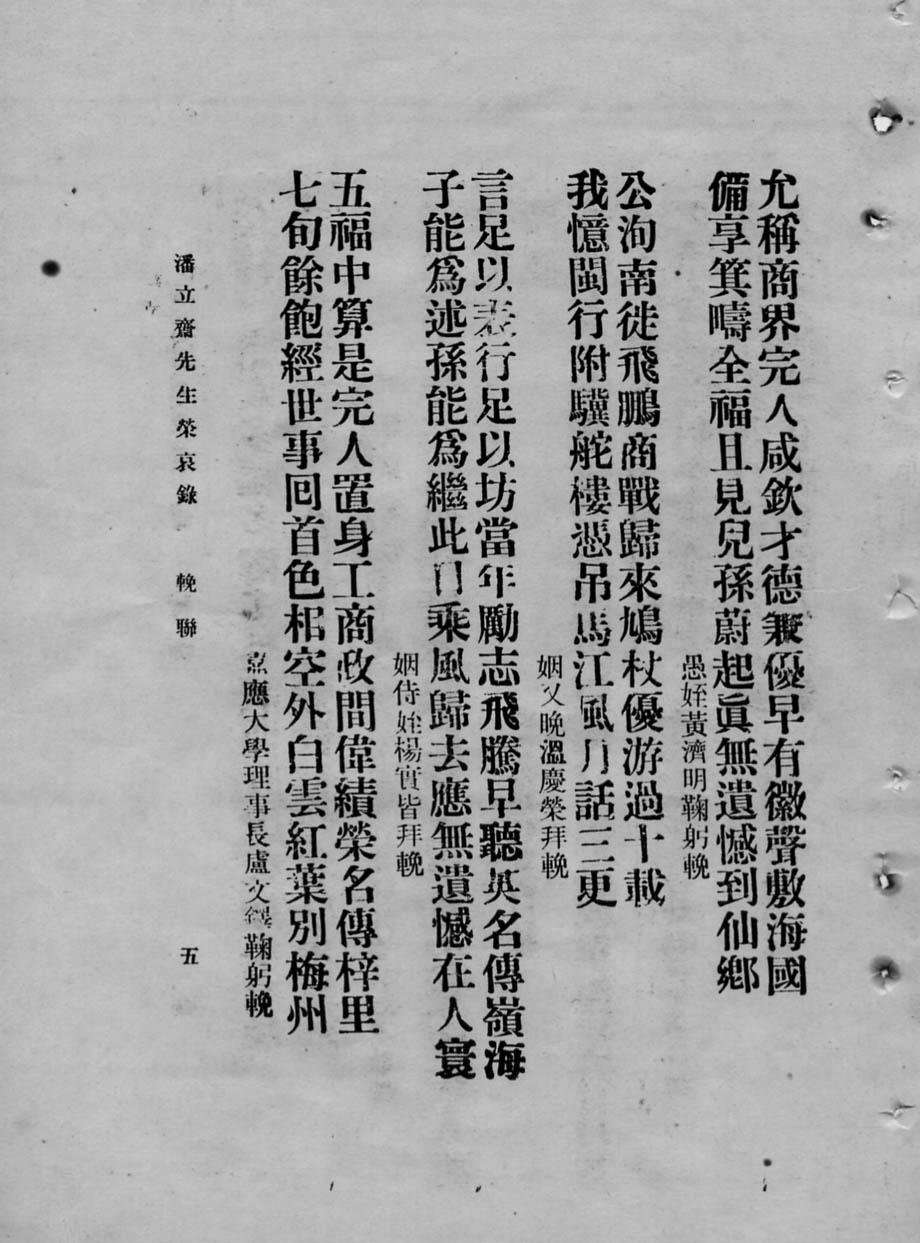 允稱商界完人咸欽才德兼優早有徽聲敷海國
備享箕疇全福且見兒孫蔚起眞無遺憾到仙鄕
愚姪黃濟明鞠躬輓
公洵南徙飛鵬商戰歸來鳩杖優游過十載
我憶閩行附驥舵樓憑吊馬江風月話三更
姻乂晚溫慶榮拜輓
言足以表行足以坊當年勵志飛騰早聽英名傳嶺海
子能爲述孫能爲繼此日乘風歸去應無遺憾在人寰
姻侍姪楊實皆拜輓
五福中算是完人置身工商政問偉績榮名傳梓里
七旬餘飽經世事回首色相空外白雲紅葉別梅州
嘉應大學理事長盧文鐸鞠躬輓
潘立齋先生榮哀錄 輓聯 五